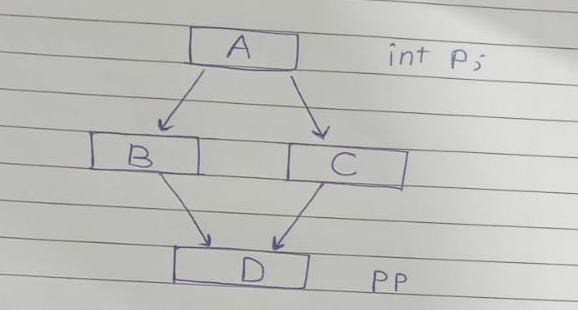 A int p;
B C
D PP